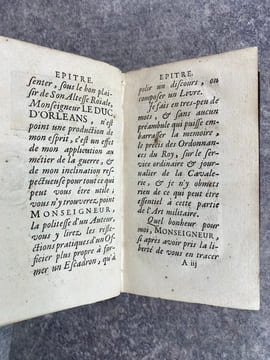 EPITRE.
senter, sous le bon plai-
sir de Son Altesse Roiale,
Monseigneur LE DUC
D'ORLEANS, n'est
point une production de
mon esprit, c'est un effet
de mon application au
métier de la guerre, & de
de mon inclination res-
pectueuse pour tout ce qui
peut vous être utile;
vous n'y trouverez, point
MONSEIGNEUR,
la politesse d'un Auteur,
vous y lirez les refle-
ctions pratiques d'un Of-
ficier plus propre à for-
mer un Escadron, qu'à
EPITRE.
polir un discours, ou
composer un Livre.
Je fais en tres-peu de
mots, & sans aucun
préambule qui puisse em-
barasser la memoire,
le précis des Ordonnan-
ces du Roy, sur le ser-
vice ordinaire & jour-
nalier de la Cavale-
rie, & je n'y obmets
rien de ce qui peut être
essentiel à cette partie
de l'Art militaire.
Quel bonheur pour
moi, MONSEIGNEUR,
si après avoir pris la li-
berté de vous en tracer
A iij